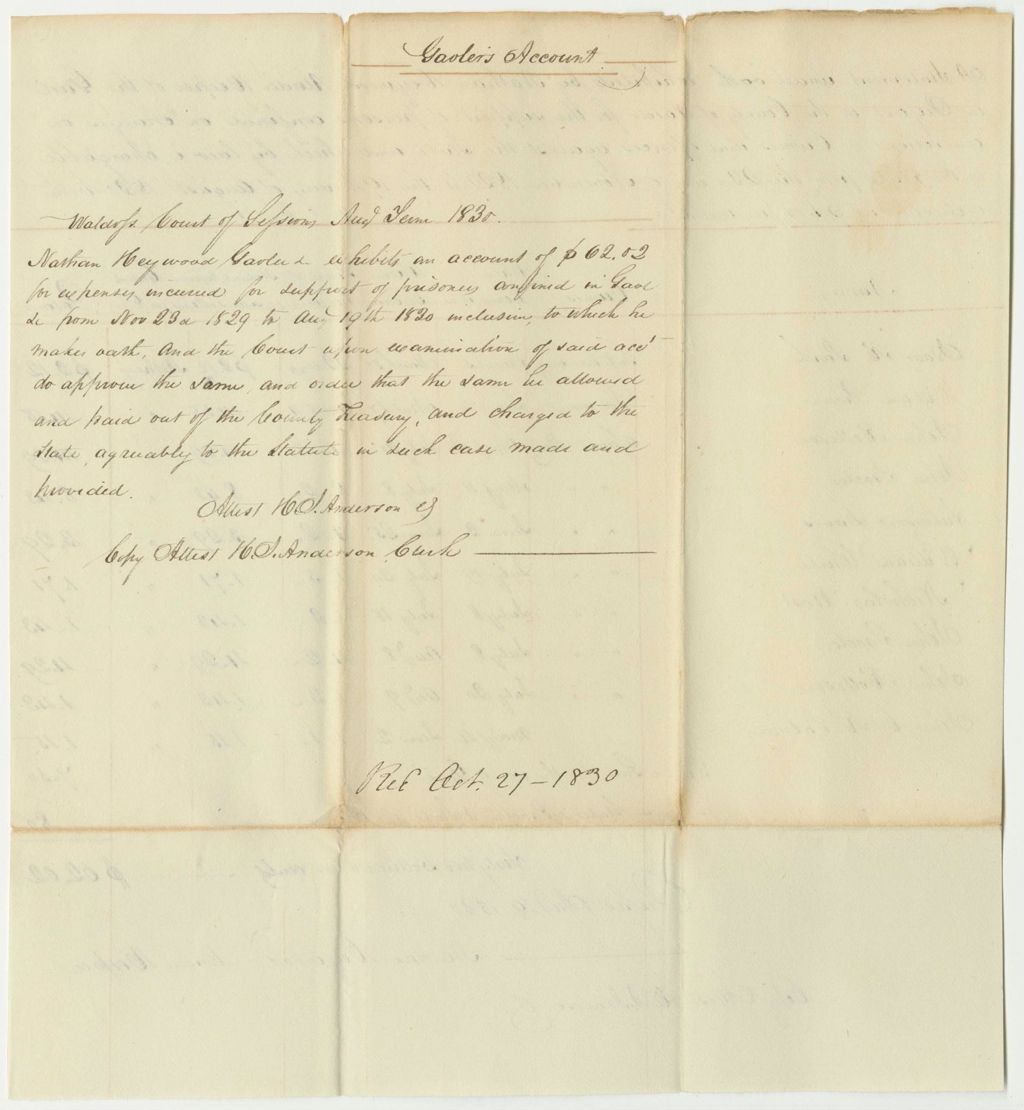 Gaoler's Account
Waldo ss. Court of Sessions Augt Term 1830.
Nathan Heywood Gaoler &c exhibits an account of $62.02
for expenses incurred for support of prisoners confined in Gaol
&c from Nov 23d 1829 to Aug 19th 1830 inclusive, to which he
makes oath, and the Court upon examination of said acct
do approve the same, and order that the same be allowed
and paid out of the County Treasury, and charged to the
State, agreeably to the Statute in such case made and
provided.
Attest H. J. Anderson Clk
Copy Attest H. J. Anderson Clerk
Recd Oct. 27 - 1830